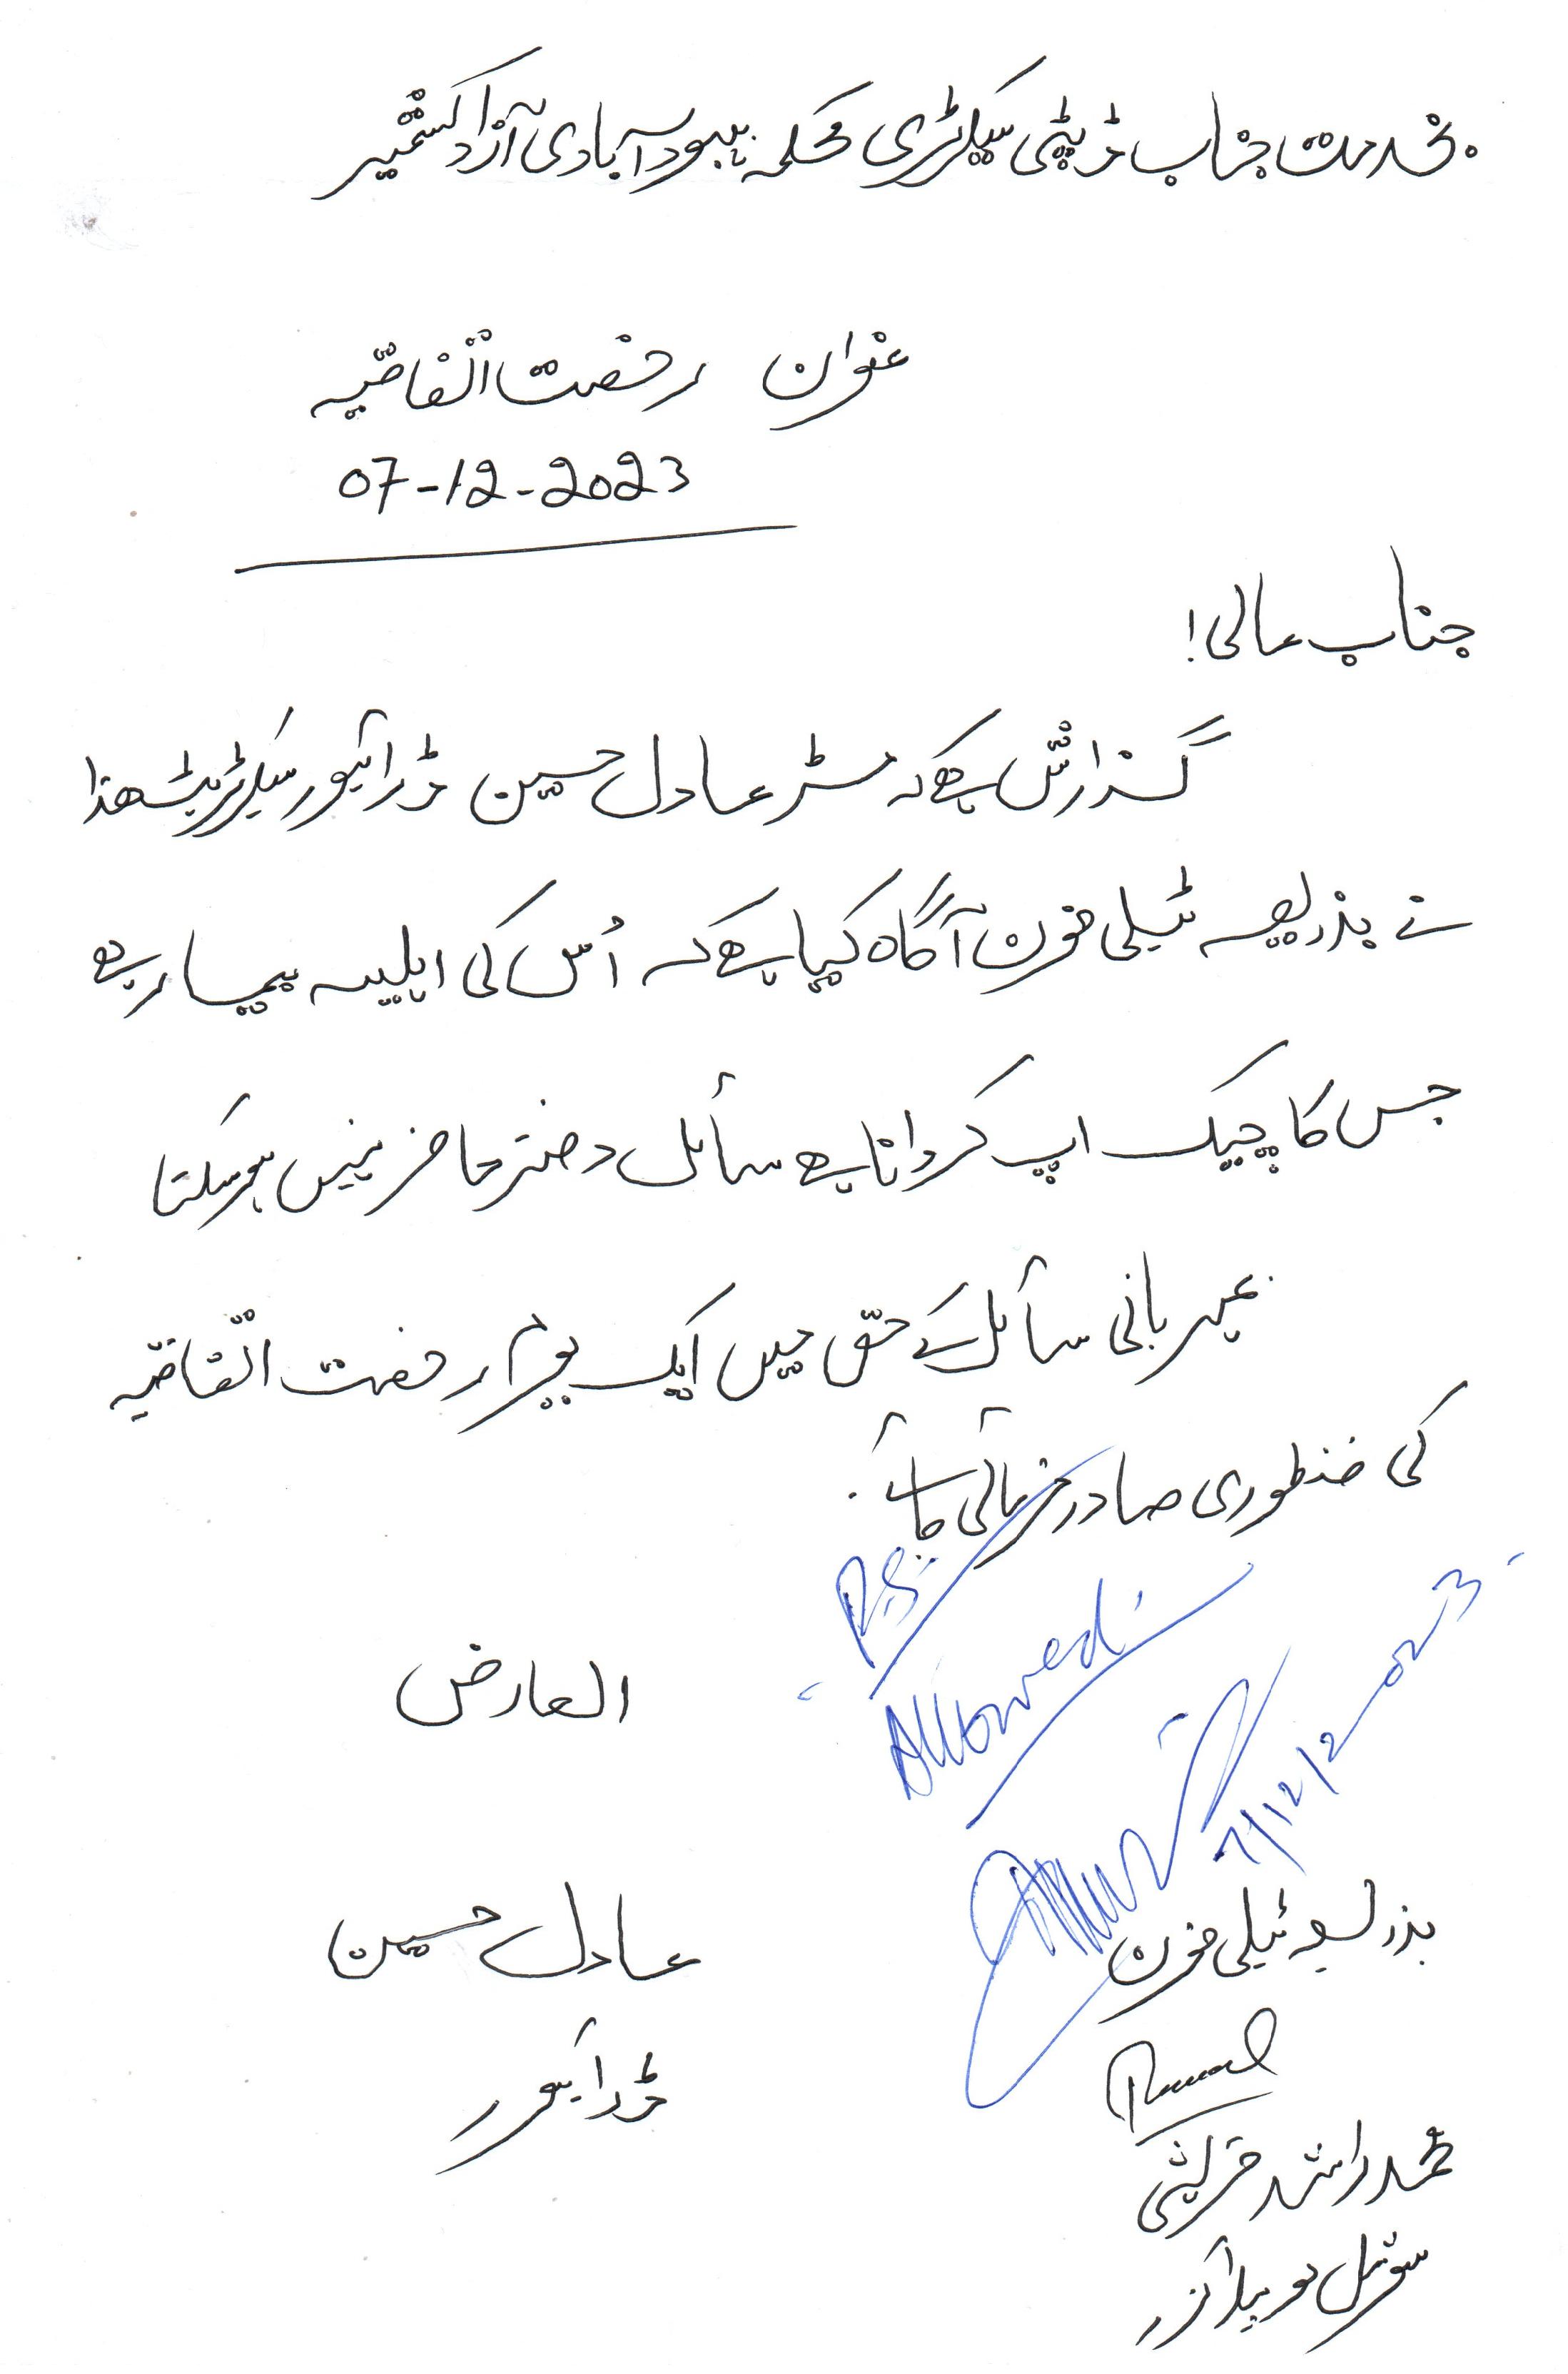 بخدمت جناب ڈپٹی سیکرٹری محکمہ بہبود آبادی آزاد کشمیر
عنوان رخصت اتفاقیہ
07-12-2023
جناب عالی!
گزارش ہے کہ مسٹر عادل حسین ڈرائیور سیکرٹریٹ ھذا
نے بذریعہ ٹیلی فون آگاہ کیا ہے کہ اُس کی اہلیہ بیمار ہے
جس کا چیک اپ کروانا ہے سائل دفتر حاضر نہیں ہو سکتا
بمہربانی سائل کے حق میں ایک یوم رخصت اتفاقیہ
کی منظوری صادر فرمائی جائے.
P.S.
Allowed
7/12/2023
العارض
عادل حسین
ڈرائیور
بذریعہ ٹیلی فون
محمد راشد قریشی
سوشل موبلائزر